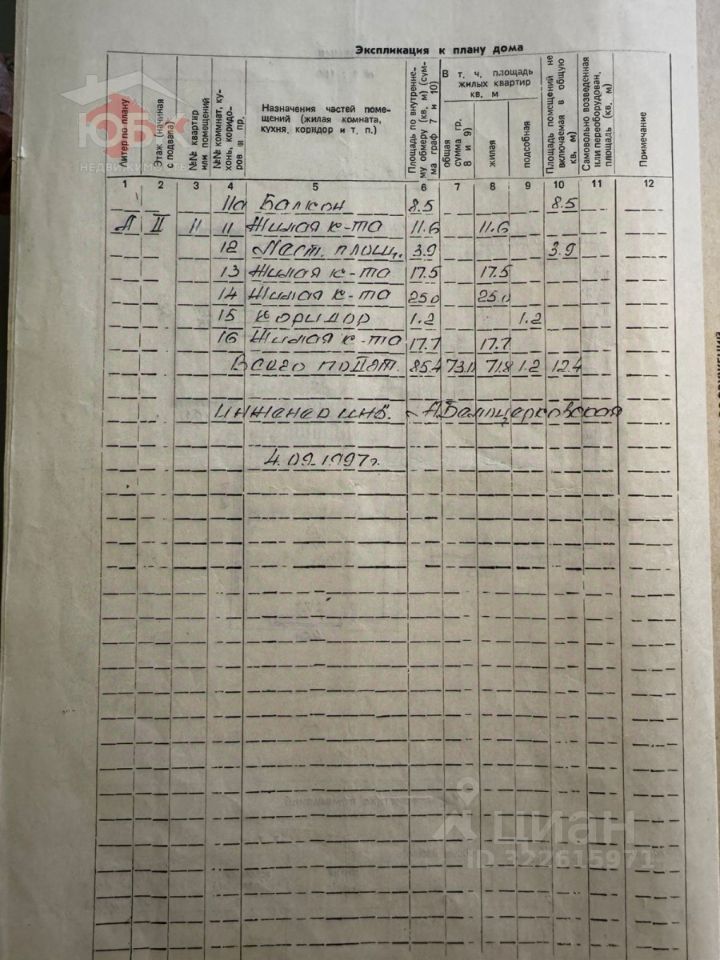 Экспликация к плану дома
Литер по плану
Этаж (начиная с подвала)
№№ квартир или помещений
№№ комнат, кухонь, коридоров и пр.
Назначения частей помещений (жилая комната, кухня, коридор и т. п.)
Площадь по внутреннему обмеру (кв, м) (сумма граф 7 и 10)
В т. ч, площадь жилых квартир кв, м
общая сумма гр. 8 и 9)
жилая
подсобная
Площадь помещений не включаемая в общую кв, м)
Самовольно возведенная или переоборудован, площадь (кв, м)
Примечание
1 2 3 4 5 6 7 8 9 10 11 12
11а Балкон 8.5 8.5
А II 11 11 Жилая к-та 11.6 11.6
12 Лест. площ. 3.9 3.9
13 Жилая к-та 17.5 17.5
14 Жилая к-та 25.0 25.0
15 Коридор 1.2 1.2
16 Жилая к-та 17.7 17.7
Всего по II эт. 85.4 73.0 71.8 1.2 12.4
Инженер инв. А. Белоцерковская
4.09.1997г.
ЮБК
НЕДВИЖИМ
циан
ID 322615971